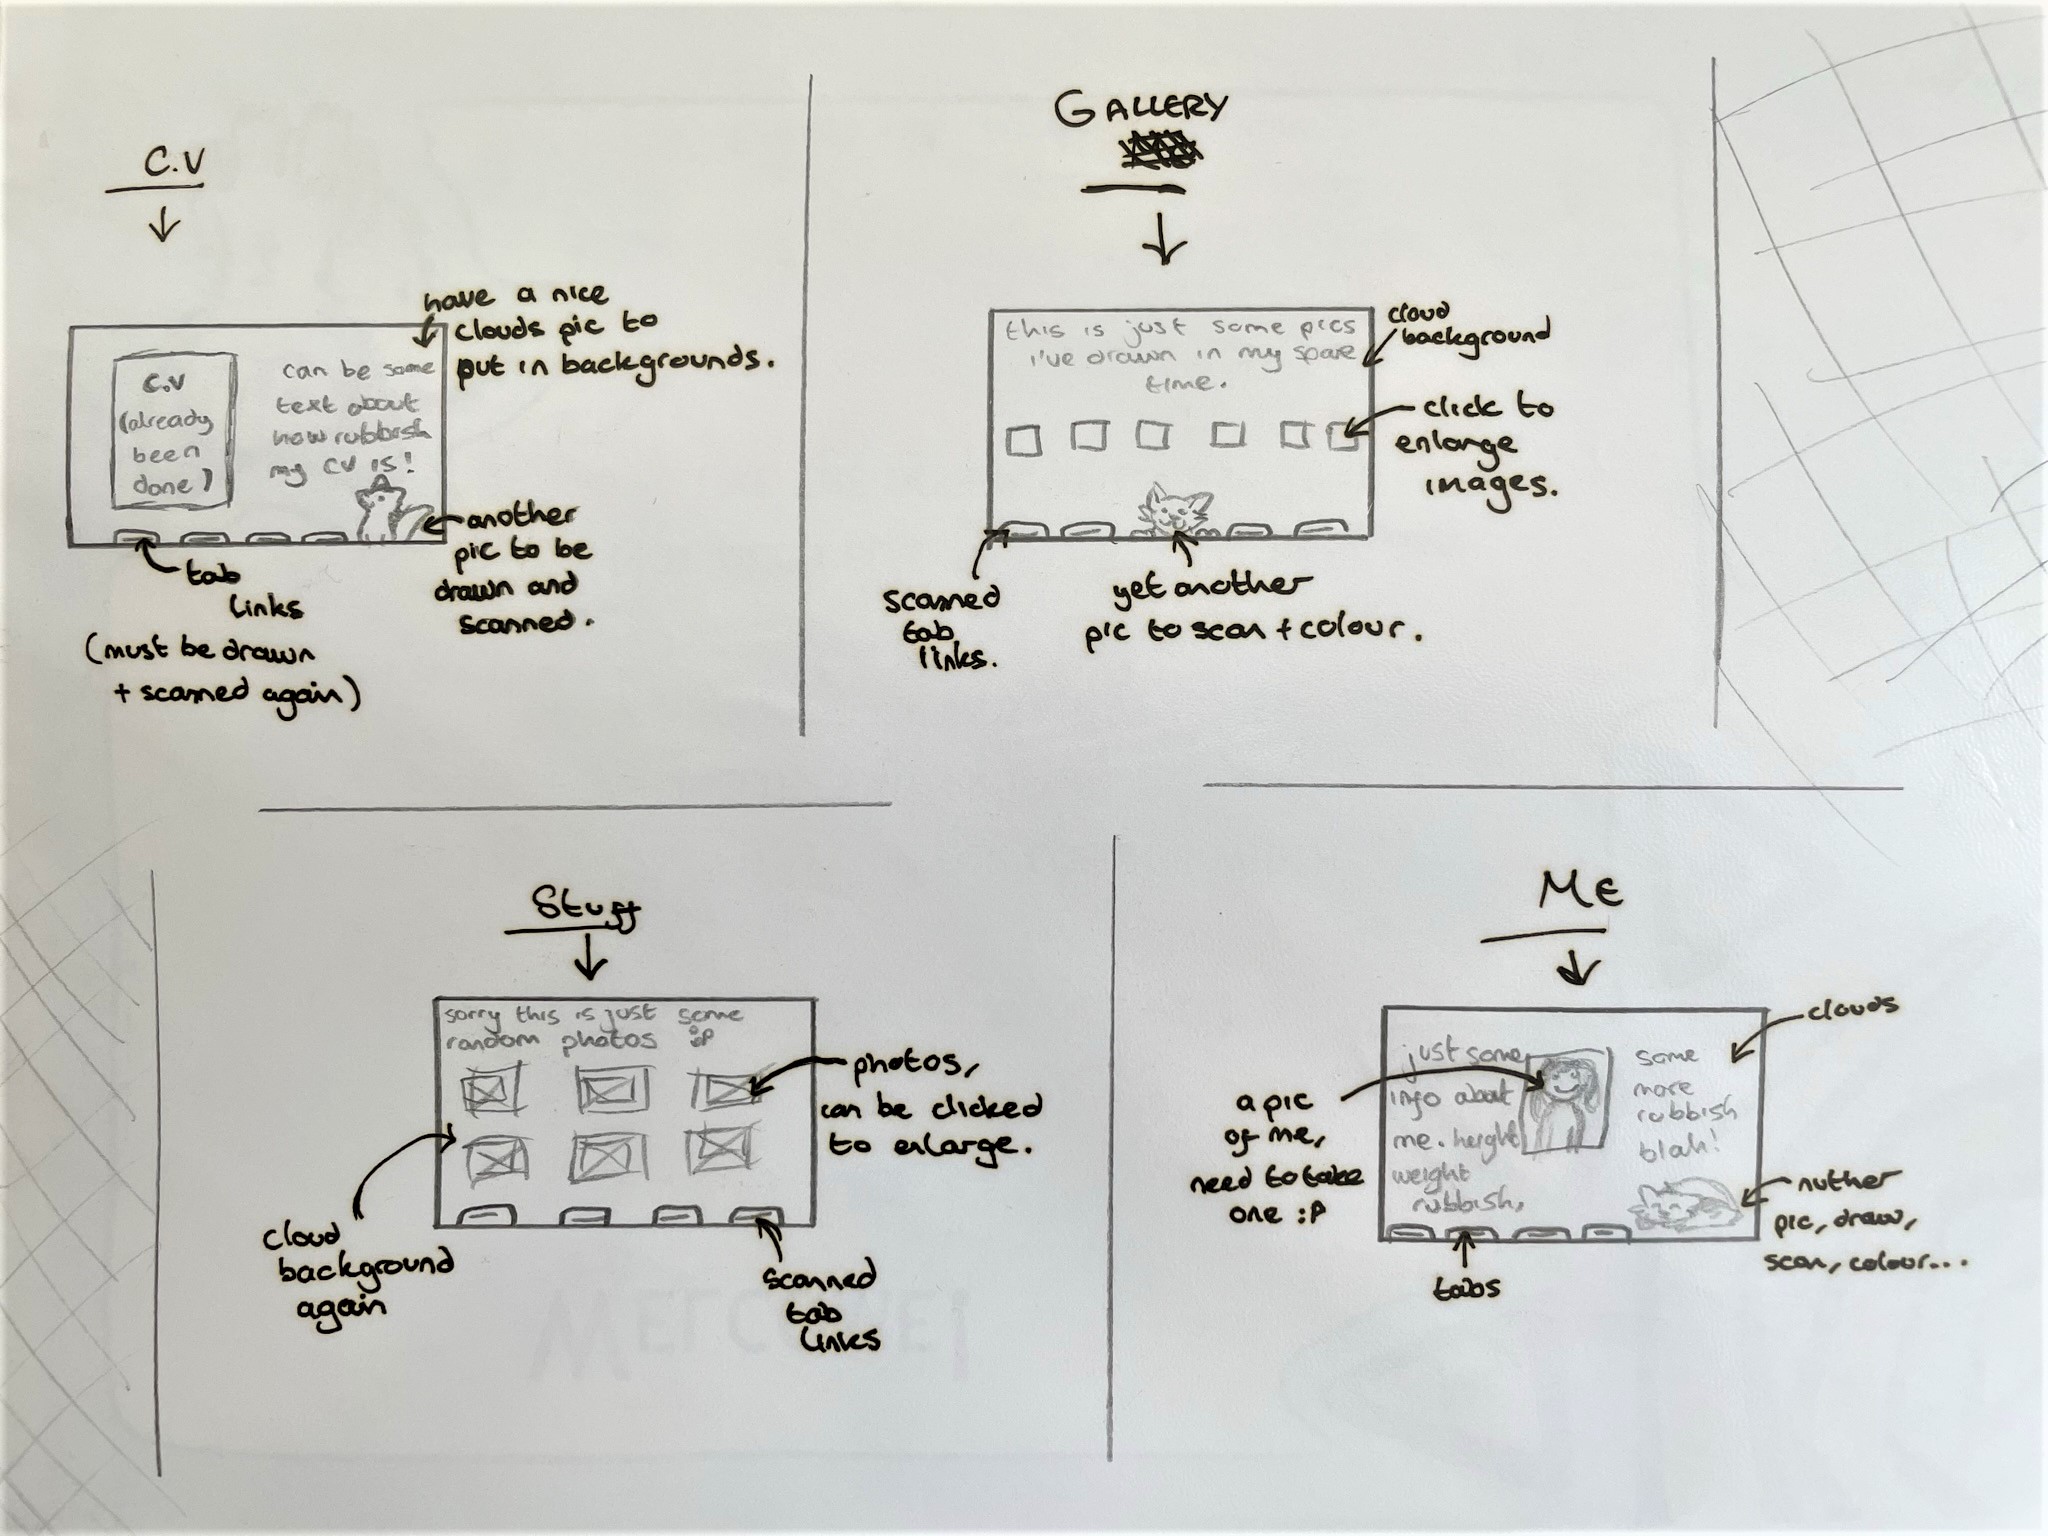 C.V
have a nice
clouds pic to
put in backgrounds.
C.V
(already
been
done)
can be some
text about
how rubbish
my CV is!
another
pic to be
drawn and
scanned.
tab
links
(must be drawn
+ scanned again)
GALLERY
this is just some pics
i've drawn in my spare
time.
cloud
background
click to
enlarge
images.
scanned
tab
links.
yet another
pic to scan + colour.
Stuff
sorry this is just some
random photos :P
photos,
can be clicked
to enlarge.
cloud
background
again
scanned
tab
links
ME
clouds
just some
info about
me. height
weight
rubbish,
some
more
rubbish
blah!
a pic
of me,
need to take
one :P
nuther
pic, draw,
scan, colour...
tabs
WELCOME!